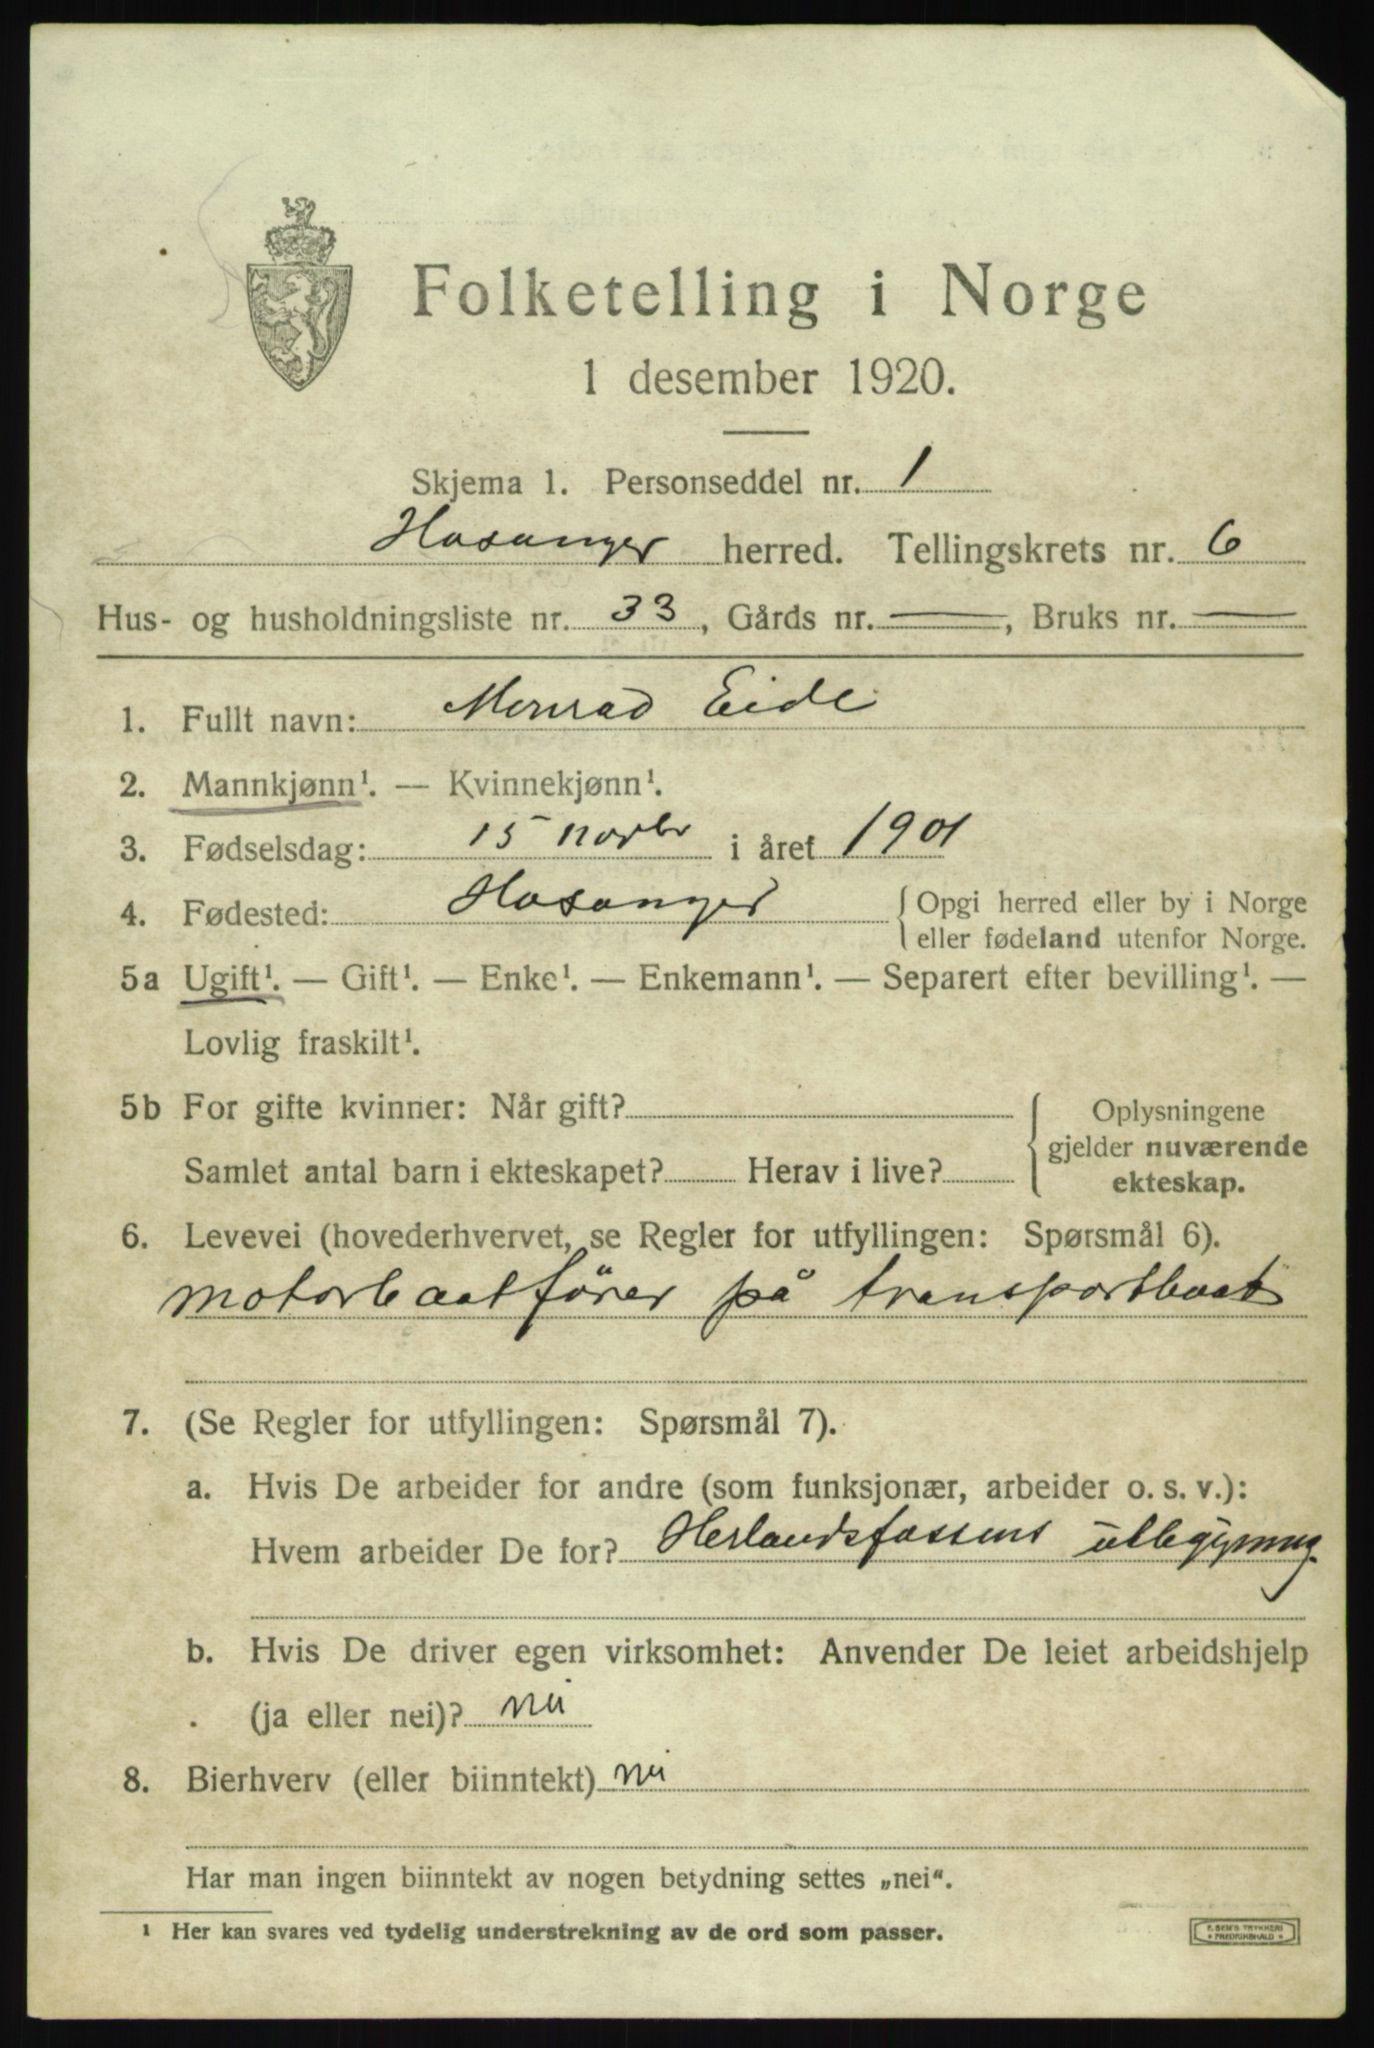 Folketelling i Norge
1 desember 1920.
Skjema 1. Personseddel nr. 1
Hosanger herred. Tellingskrets nr. 6
Hus- og husholdningsliste nr. 33, Gårds nr. —, Bruks nr. —
1. Fullt navn: Monrad Eide
2. Mannkjønn¹. — Kvinnekjønn¹.
3. Fødselsdag: 15 novbr i året 1901
4. Fødested: Hosanger { Opgi herred eller by i Norge
eller fødeland utenfor Norge.
5a Ugift¹. — Gift¹. — Enke¹. — Enkemann¹. — Separert efter bevilling¹. —
Lovlig fraskilt¹.
5b For gifte kvinner: Når gift? { Oplysningene
gjelder nuværende
Samlet antal barn i ekteskapet? Herav i live? ekteskap.
6. Levevei (hovederhvervet, se Regler for utfyllingen: Spørsmål 6).
motorbaatfører på transportbaat
7. (Se Regler for utfyllingen: Spørsmål 7).
a. Hvis De arbeider for andre (som funksjonær, arbeider o. s. v.):
Hvem arbeider De for? Herlandsfossens utbygning.
b. Hvis De driver egen virksomhet: Anvender De leiet arbeidshjelp
(ja eller nei)? nei
8. Bierhverv (eller biinntekt) nei
Har man ingen biinntekt av nogen betydning settes „nei“.
¹ Her kan svares ved tydelig understrekning av de ord som passer.
F. SEM'S TRYKKERI
* FREDRIKSHALD *